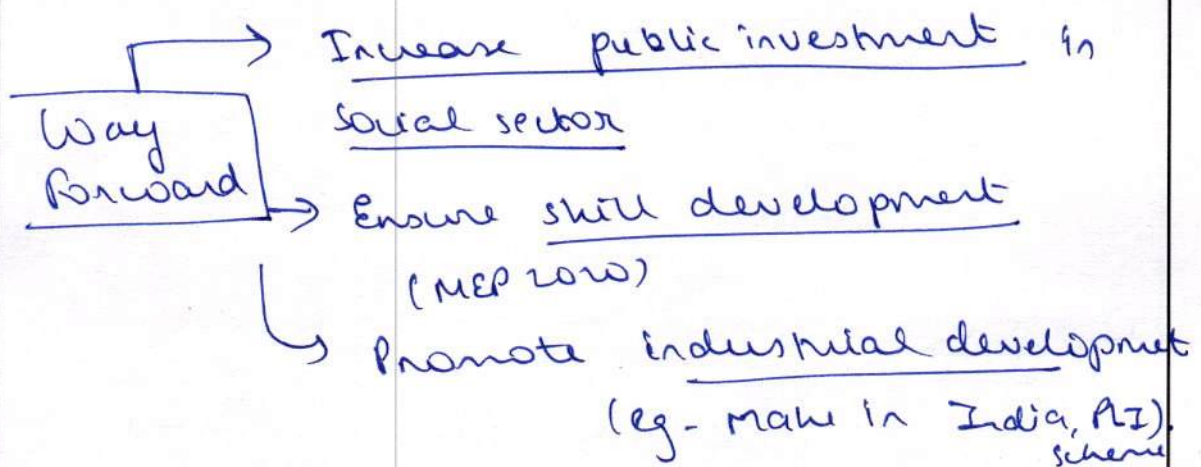 Increase public investment in
social sector
Way
Forward
Ensure skill development
(NEP 2020)
Promote industrial developmet
(eg - Make in India, PLI).
scheme